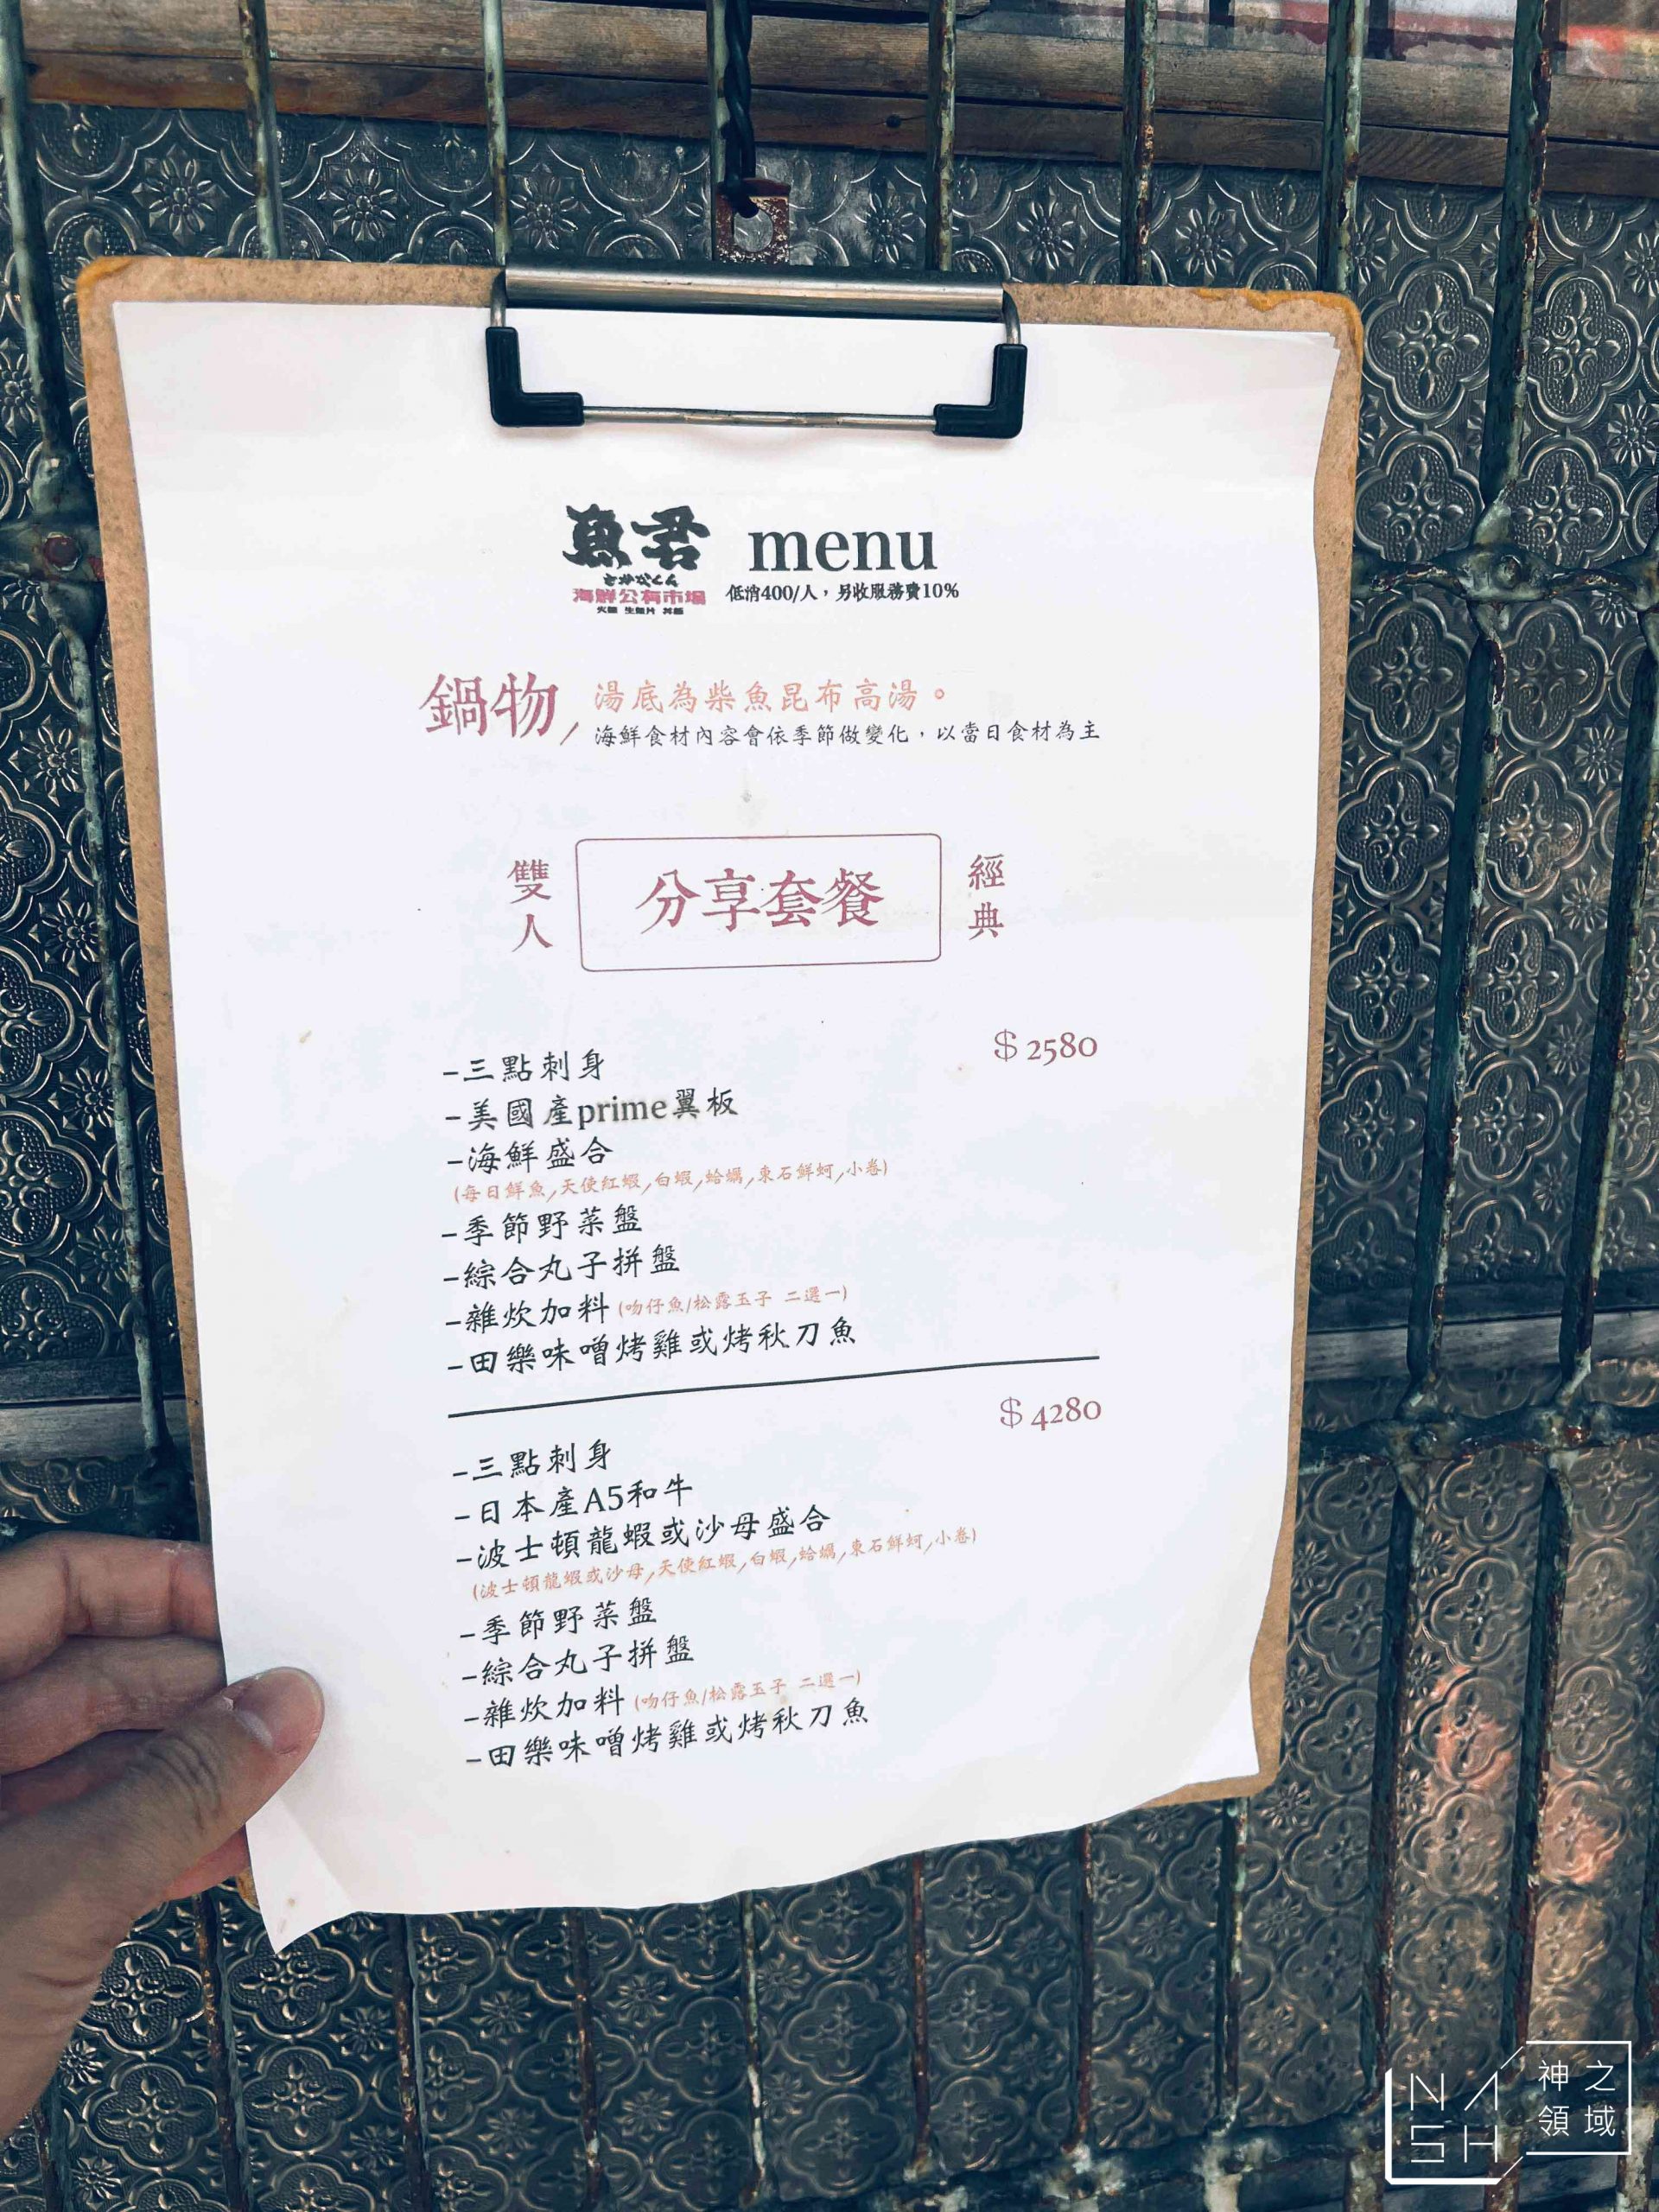 魚君 menu
さかなくん
海鮮公有市場
火鍋 生魚片 丼飯
低消400/人，另收服務費10%
鍋物
湯底為柴魚昆布高湯。
海鮮食材內容會依季節做變化，以當日食材為主
雙人
分享套餐
經典
$ 2580
-三點刺身
-美國產prime翼板
-海鮮盛合
(每日鮮魚,天使紅蝦,白蝦,蛤蠣,東石鮮蚵,小卷)
-季節野菜盤
-綜合丸子拼盤
-雜炊加料(吻仔魚/松露玉子 二選一)
-田樂味噌烤雞或烤秋刀魚
$ 4280
-三點刺身
-日本產A5和牛
-波士頓龍蝦或沙母盛合
(波士頓龍蝦或沙母,天使紅蝦,白蝦,蛤蠣,東石鮮蚵,小卷)
-季節野菜盤
-綜合丸子拼盤
-雜炊加料(吻仔魚/松露玉子 二選一)
-田樂味噌烤雞或烤秋刀魚
NASH
神之領域